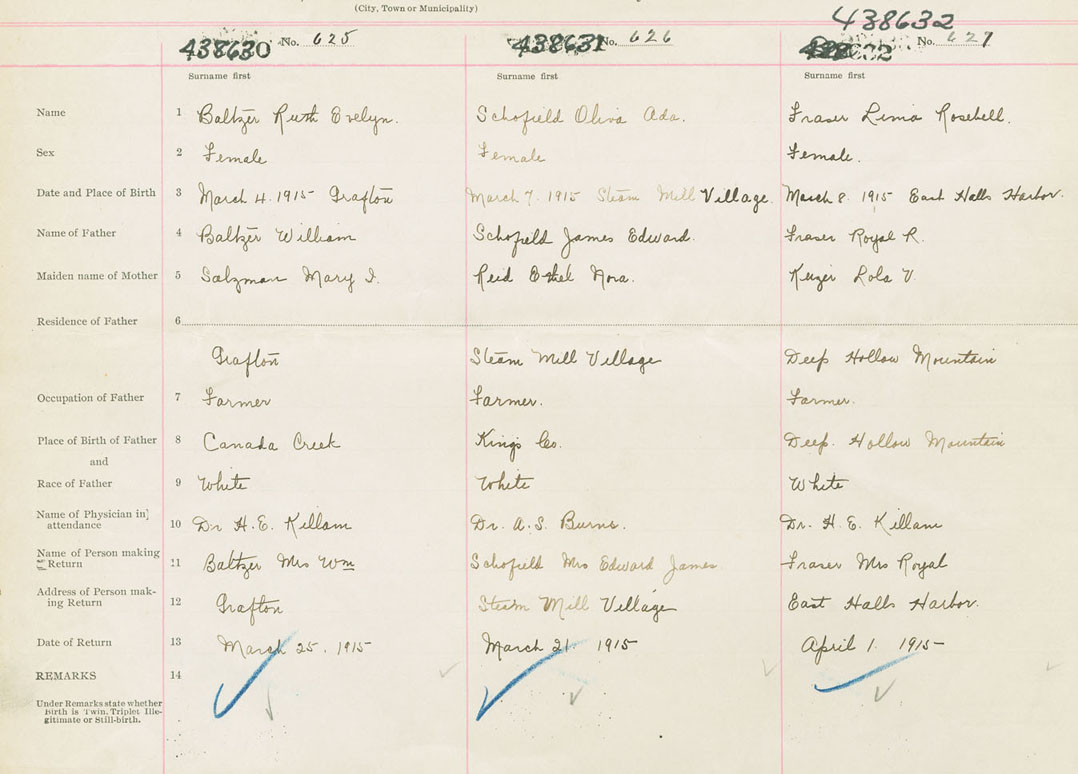 (City, Town or Municipality)
438632
438630 No. 625 438631 No. 626 No. 627
Surname first Surname first Surname first
Name 1 Baltzer Ruth Evelyn. Schofield Oliva Ada. Fraser Lima Rosebell.
Sex 2 Female Female Female.
Date and Place of Birth 3 March 4. 1915 Grafton March 7. 1915 Steam Mill Village. March 8. 1915 East Halls Harbor.
Name of Father 4 Baltzer William Schofield James Edward. Fraser Royal R.
Maiden name of Mother 5 Salzman Mary I. Reid Ethel Nora. Keizer Lola V.
Residence of Father 6
Grafton Steam Mill Village Deep Hollow Mountain
Occupation of Father 7 Farmer Farmer. Farmer.
Place of Birth of Father 8 Canada Creek Kings Co. Deep. Hollow Mountain
and
Race of Father 9 White White White
Name of Physician in attendance 10 Dr H. E. Killam Dr. A. S. Burns. Dr. H. E. Killam
Name of Person making Return 11 Baltzer Mrs Wm Schofield Mrs Edward James Fraser Mrs Royal
Address of Person mak-
ing Return 12 Grafton Steam Mill Village East Halls Harbor.
Date of Return 13 March 25. 1915 March 21 1915 April 1. 1915
REMARKS 14
Under Remarks state whether
Birth is Twin, Triplet Ille-
gitimate or Still-birth.